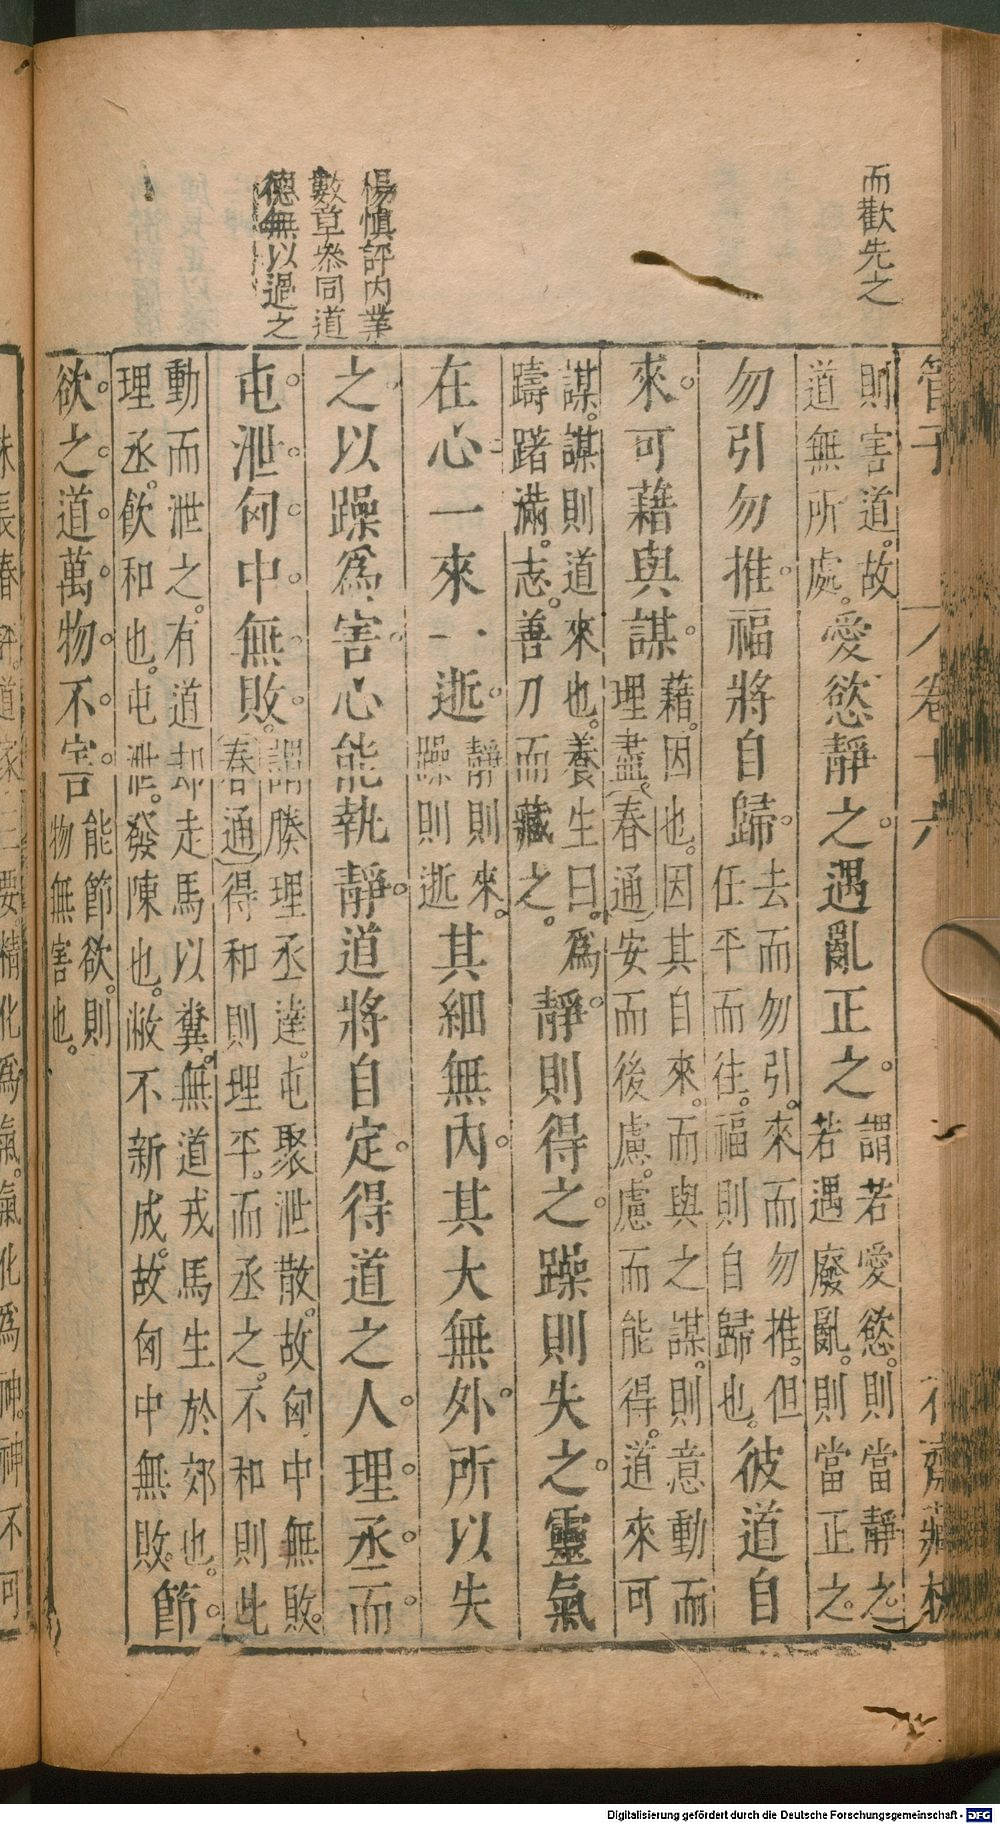 而歡先之
楊慎評內業
數章叅同道
德無以過之
管子 卷十六
則害道。故
道無所處。
愛慾靜之。遇亂正之。
謂若愛慾。則當靜之。
若遇廢亂。則當正之。
勿引勿推。福將自歸。
去而勿引。來而勿推。但
任平而往。福則自歸也。
彼道自
來。可藉與謀。
藉。因也。因其自來。而與之謀。則意動而
理盡。(春通)安而後慮。慮而能得。道來可
謀。謀則道來也。養生曰。為
躊躇滿志。善刀而藏之。
靜。則得之。躁則失之。靈氣
在心。一來一逝。
靜則來。
躁則逝
其細無內。其大無外。所以失
之。以躁爲害。心能執靜。道將自定。得道之人。理丞而
屯泄。匈中無敗。
謂腠理丞達。屯聚泄散。故匈中無敗。
(春通)得和則理平。而丞之。不和則此
動而泄之。有道却走馬以糞。無道戎馬生於郊也。
理丞。飲和也。屯泄。發陳也。敝不新成。故匈中無敗。
節
欲之道。萬物不害。
能節欲。則
物無害也。
朱長春評。道家三要精化爲氣。氣化爲神。神不可
Digitalisierung gefördert durch die Deutsche Forschungsgemeinschaft - DFG